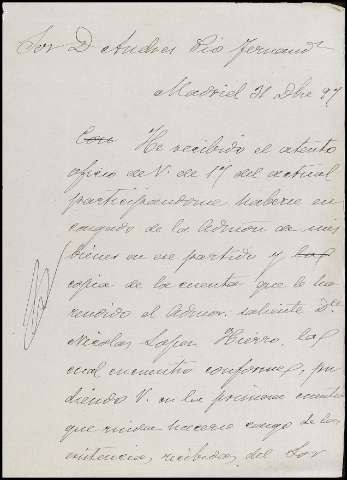 Sor D Andres Pio Fernandz
Madrid 31 Dbre 97
Con He recibido el atento
oficio de V. de 17 del actual
participandome haberse en
cargado de la Admón de mis
bienes en ese partido y las
copia de la cuenta que le ha
rendido el Admor. saliente Dn
Nicolas Hierro, la
cual encuentro conforme, pu
diendo V. en la primera cuenta
que rinda hacerse cargo de las
existencias recibidas del Sor